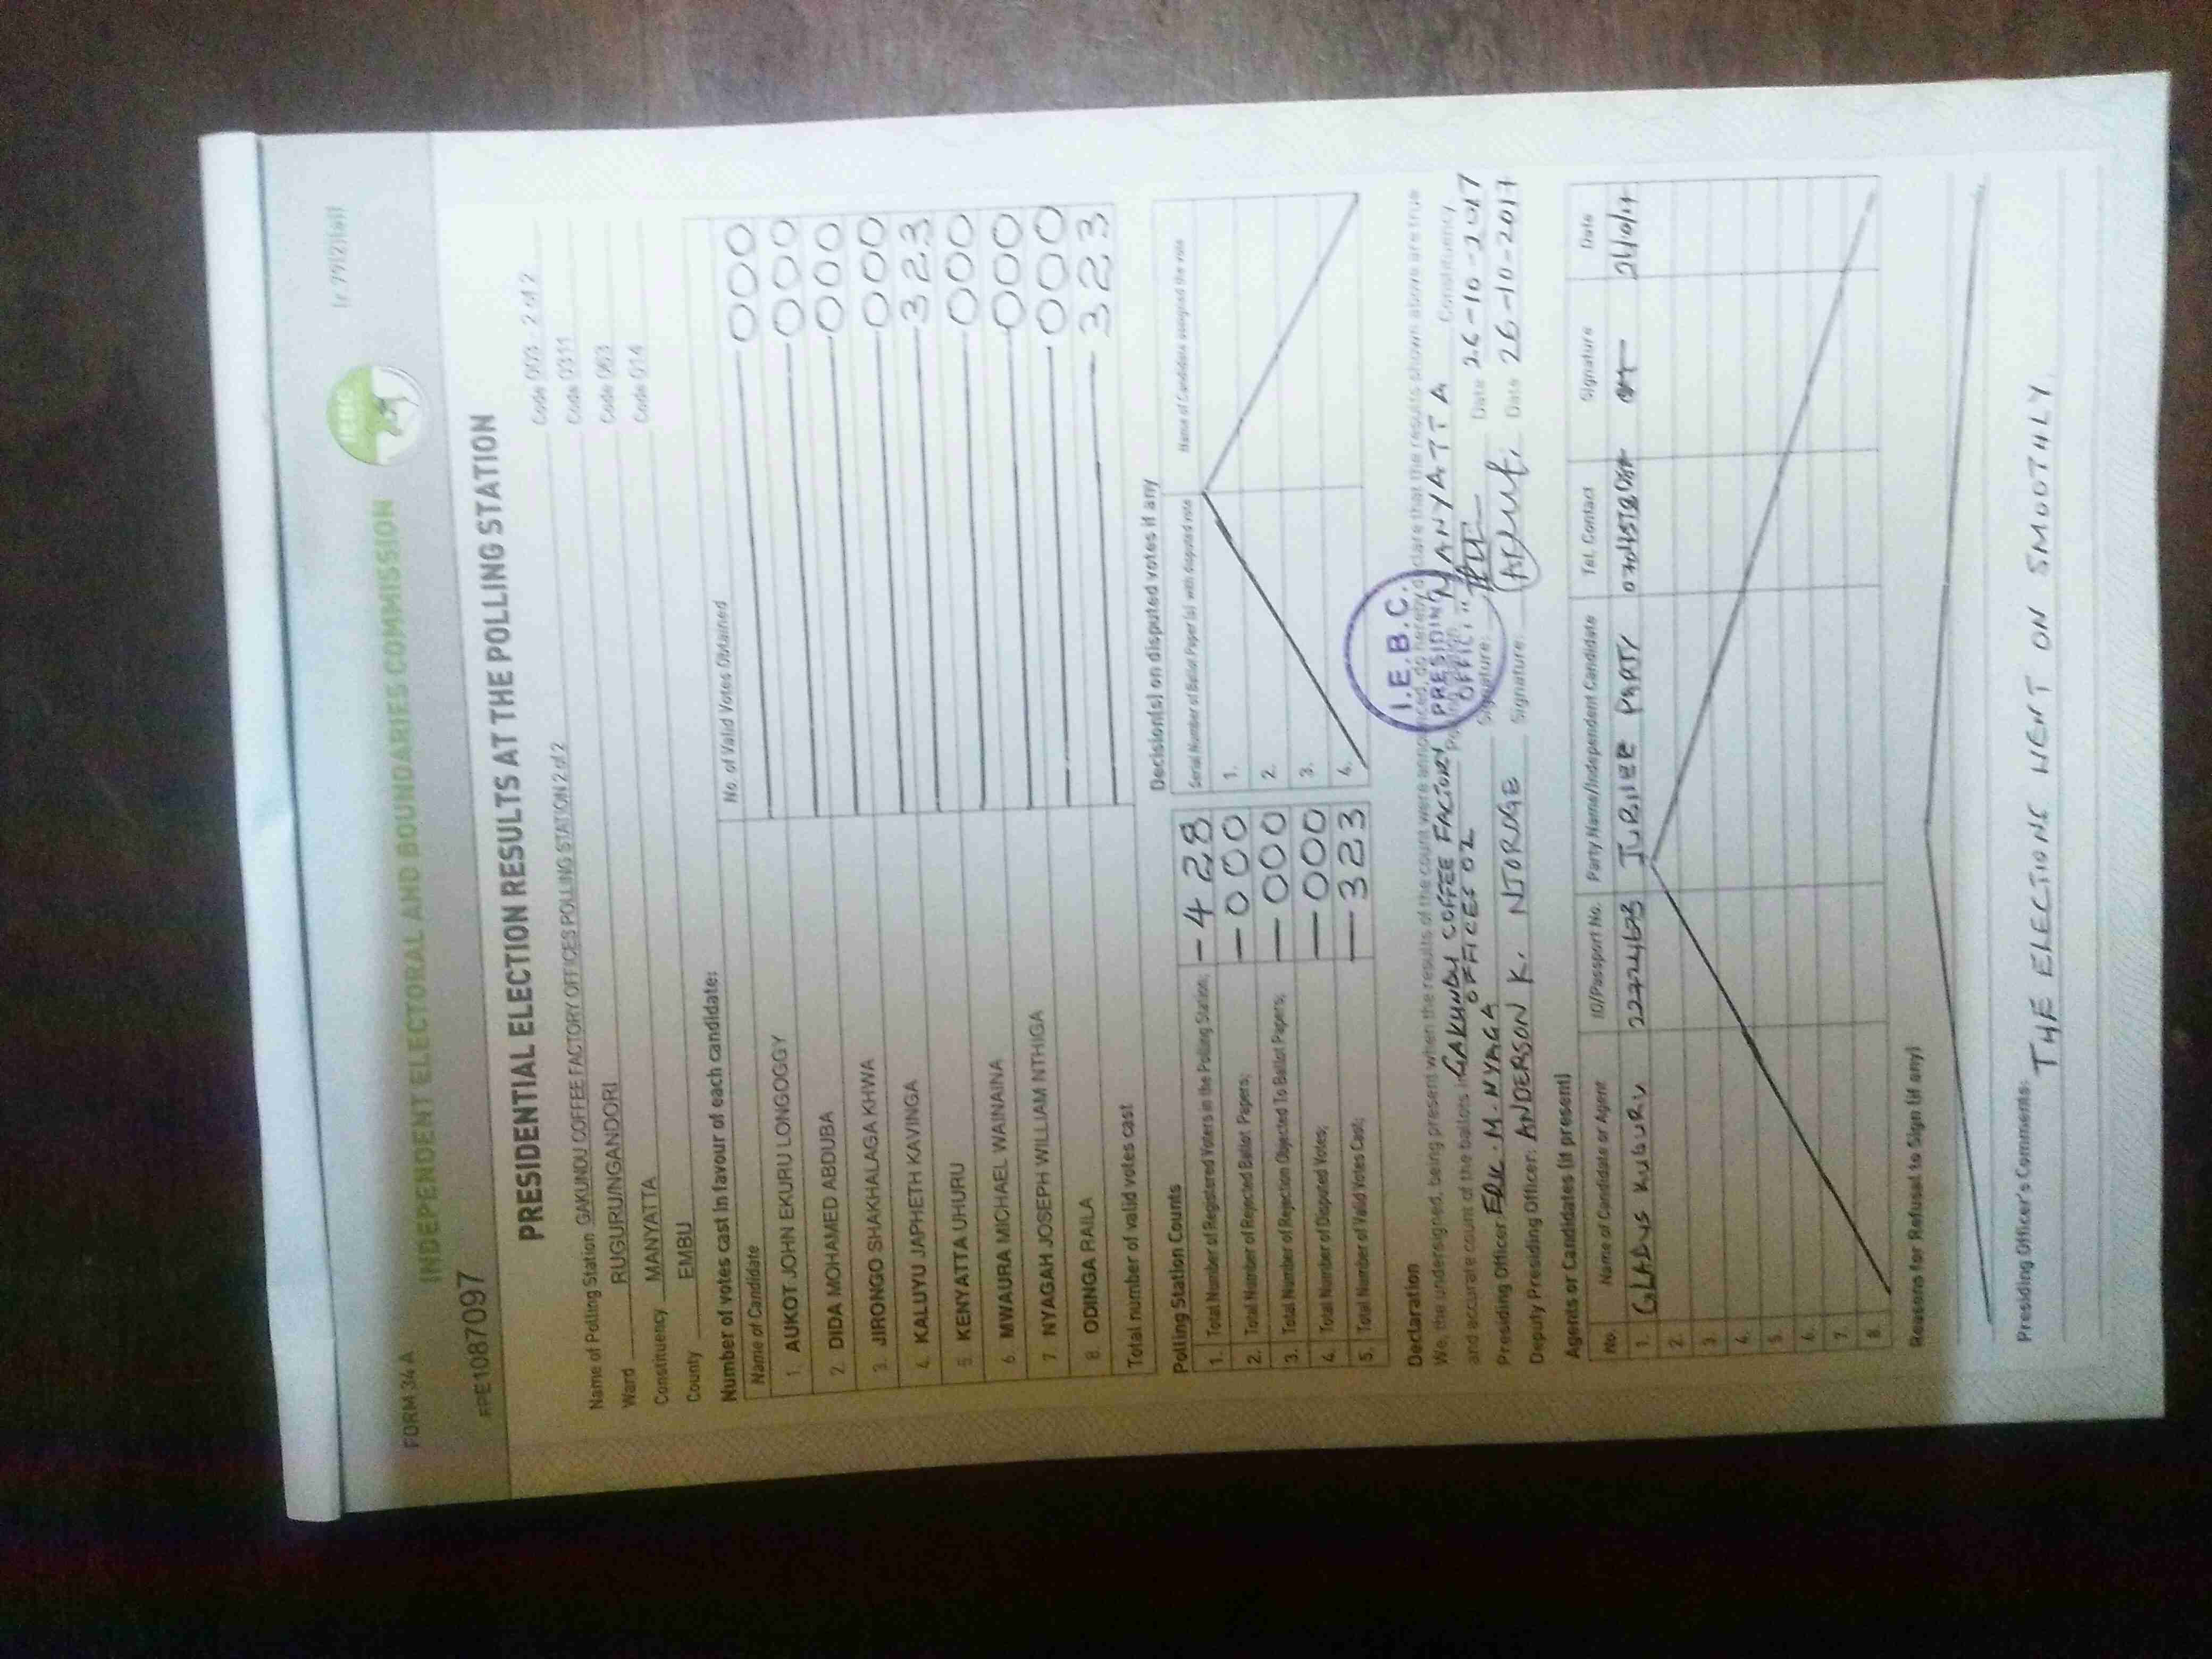 FORM 34 A
INDEPENDENT ELECTORAL AND BOUNDARIES COMMISSION
IEBC
FPE1087097
PRESIDENTIAL ELECTION RESULTS AT THE POLLING STATION
Name of Polling Station GAKUNDU COFFEE FACTORY OFFICES POLLING STATION 2 of 2 Code 003 - 2 of 2
Ward RUGURU/NGANDORI Code 0311
Constituency MANYATTA Code 063
County EMBU Code 014
Number of votes cast in favour of each candidate:
Name of Candidate No. of Valid Votes Obtained
1. AUKOT JOHN EKURU LONGOGGY 000
2. DIDA MOHAMED ABDUBA 000
3. JIRONGO SHAKHALAGA KHWA 000
4. KALUYU JAPHETH KAVINGA 000
5. KENYATTA UHURU 323
6. MWAURA MICHAEL WAINAINA 000
7. NYAGAH JOSEPH WILLIAM NTHIGA 000
8. ODINGA RAILA 000
Total number of valid votes cast 323
Polling Station Counts
1. Total Number of Registered Voters in the Polling Station; 428
2. Total Number of Rejected Ballot Papers; 000
3. Total Number of Rejection Objected To Ballot Papers; 000
4. Total Number of Disputed Votes; 000
5. Total Number of Valid Votes Cast; 323
Decision(s) on disputed votes if any
Serial Number of Ballot Paper (s) with disputed vote Name of Candidate assigned the vote
1.
2.
3.
4.
Declaration
We, the undersigned, being present when the results of the count were announced, do hereby declare that the results shown above are true
and accurate count of the ballots in GAKUNDU COFFEE FACTORY OFFICES 02 MANYATTA Constituency
I.E.B.C. PRESIDING
Presiding Officer: ERIC M. NYAGA Signature: Date 26-10-2017
Deputy Presiding Officer: ANDERSON K. NJOROGE Signature: Date 26-10-2017
Agents or Candidates (if present)
No. Name of Candidate or Agent ID/Passport No. Party Name/Independent Candidate Tel. Contact Signature Date
1. GLADYS KUBURI JUBILEE PARTY
2.
3.
4.
5.
6.
7.
8.
Reasons for Refusal to Sign (if any)
Presiding Officer's Comments:
THE ELECTIONS WENT ON SMOOTHLY